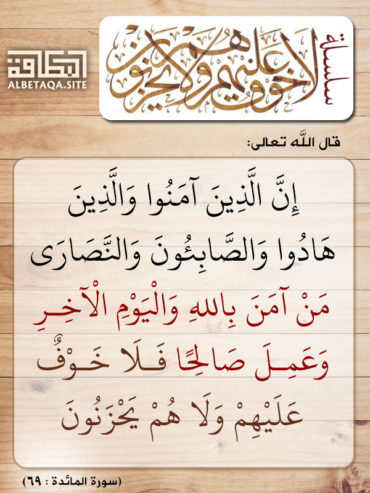 سلسلة
لا خوف عليهم ولا هم يحزنون
البطاقة
ALBETAQA.SITE
قال الله تعالى:
إِنَّ الَّذِينَ آمَنُوا وَالَّذِينَ
هَادُوا وَالصَّابِئُونَ وَالنَّصَارَى
مَنْ آمَنَ بِاللهِ وَالْيَوْمِ الْآخِرِ
وَعَمِلَ صَالِحًا فَـلَا خَـوْفٌ
عَلَيْهِمْ وَلَا هُمْ يَحْزَنُونَ
(سورة المائدة : ٦٩)